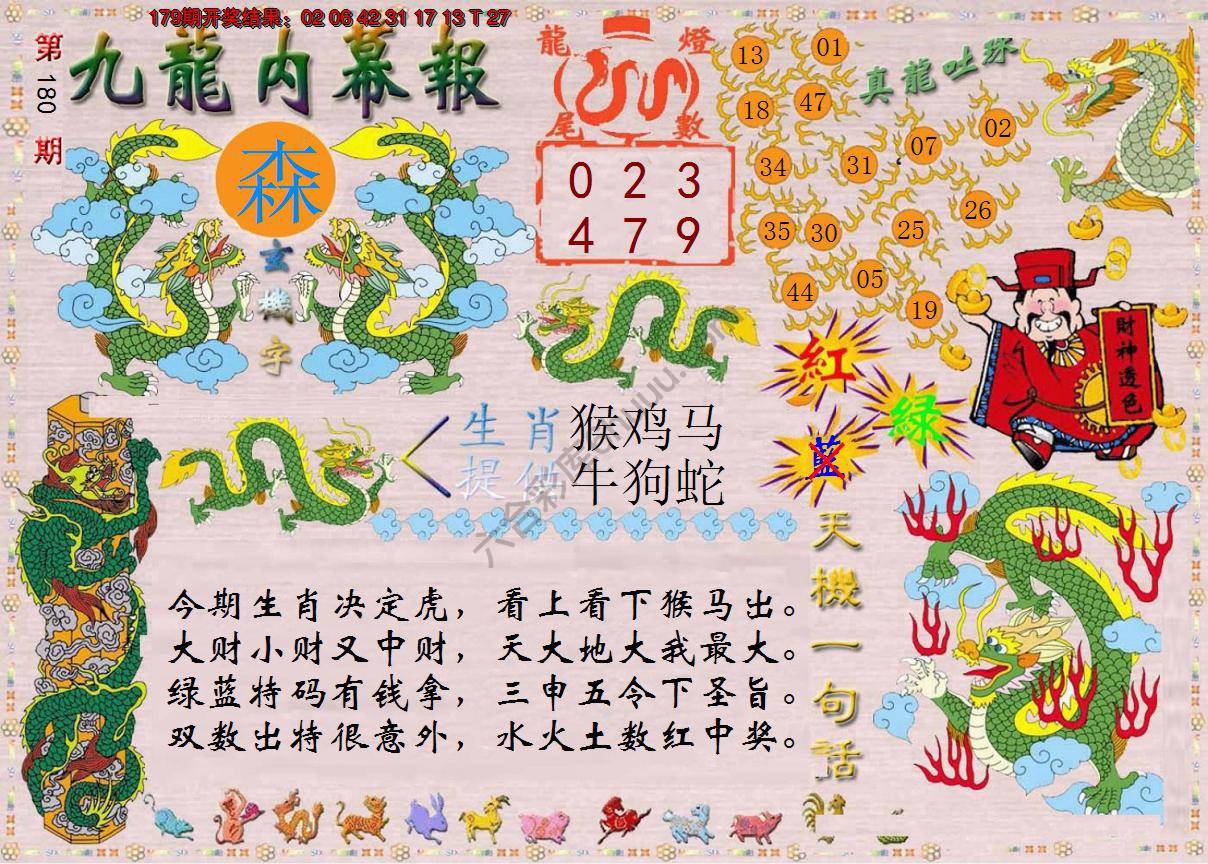 179期开奖结果：02 06 42 31 17 13 T 27
第180期
九龍内幕報
森
玄機字
龍燈尾數
0 2 3
4 7 9
真龍吐珠
13 01
18 47
34 31 07 02
35 30 25 26
44 05 19
財神透色
紅
綠
藍
生肖 猴鸡马
提供 牛狗蛇
天機一句話
今期生肖决定虎，看上看下猴马出。
大财小财又中财，天大地大我最大。
绿蓝特码有钱拿，三申五令下圣旨。
双数出特很意外，水火土数红中奖。